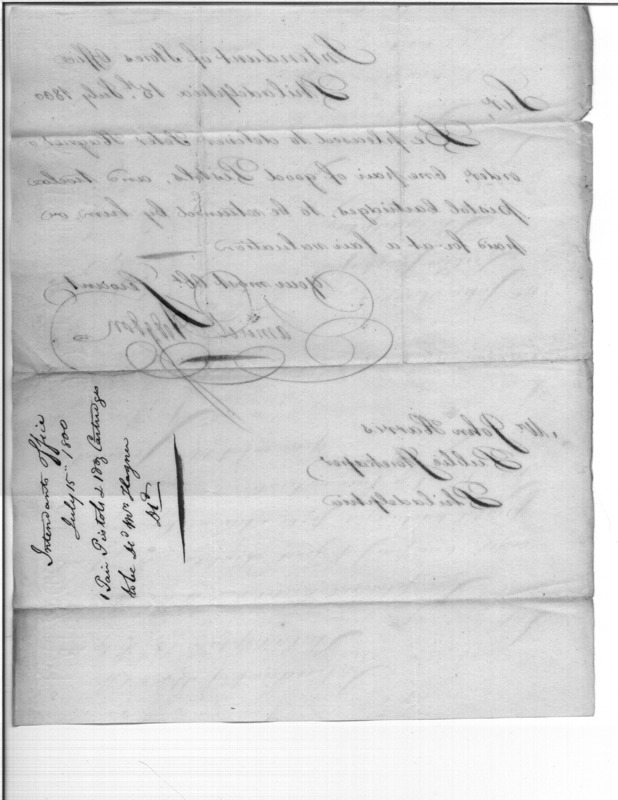 Intendant of Stores Office
Philadelphia 15th July 1800
Sir,
Be pleased to deliver Peter Hagner's
order, One pair of good Pistols, and twelve
pistol Cartridges, to be returned by him, or
paid for at a fair valuation
Your most Obt. Servant
Samuel Hodgson
Mr. John Harris
Public Storekeeper
Philadelphia
Intendants Office
July 15th 1800
1 Pair Pistols & 1 doz Cartridges
to be Dd Mr Hagner
Dd